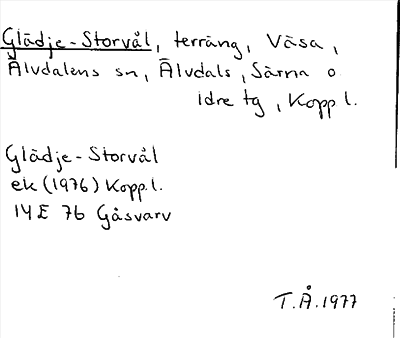 Glädje-Storvål, terräng, Väsa,
Älvdalens sn, Älvdals, Särna o
Idre tg, Kopp l.
Glädje-Storvål
ek (1976) Kopp l.
14E 7b Gåsvarv
T.Å. 1977